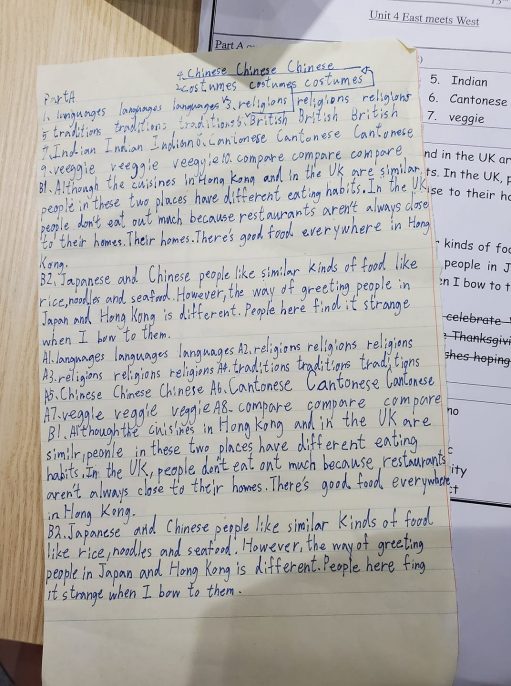 Unit 4 East meets West
Part A
5. Indian
6. Cantonese
7. veggie
nd in the UK ar
ts. In the UK, p
se to their ho
kinds of foo
people in J
n I bow to t
celebrate
Thanksgivi
shes hoping
no
ity
ct
4. Chinese Chinese Chinese
Part A 2costumes costumes costumes
1. languages languages languages 3. religions religions religions
5 traditions traditions traditions 6. British British British
7. Indian Indian Indian 8. Cantonese Cantonese Cantonese
9. veeggie veeggie veeggie 10. compare compare compare
B1. Although the cuisines in Hong Kong and in the UK are similar,
people in these two places have different eating habits. In the UK,
people don't eat out much because restaurants aren't always close
to their homes. Their homes. There's good food everywhere in Hong
Kong.
B2. Japanese and Chinese people like similar kinds of food like
rice, noodles and seafood. However, the way of greeting people in
Japan and Hong Kong is different. People here find it strange
when I bow to them.
A1. languages languages languages A2. religions religions religions
A3. religions religions religions A4. traditions traditions traditions
A5. Chinese Chinese Chinese A6. Cantonese Cantonese Cantonese
A7. veggie veggie veggie A8. compare compare compare
B1. Although the cuisines in Hong Kong and in the UK are
similr, peonle in these two places have different eating
habits. In the UK, people don't eat ont much because restaurants
aren't always close to their homes. There's good food everywhere
in Hong Kong.
B2. Japanese and Chinese people like similar kinds of food
like rice, noodles and seafood. However, the way of greeting
people in Japan and Hong Kong is different. People here fing
it strange when I bow to them.